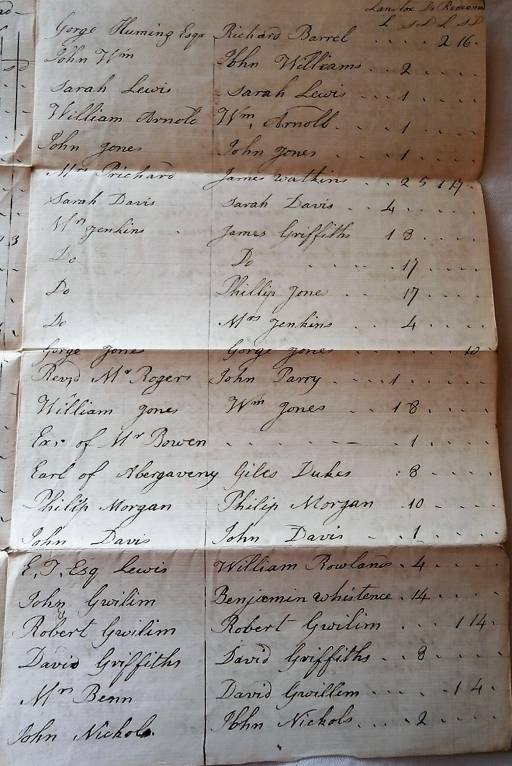 Lantax Do Received
L S D L S D
Gorge Huming Esqr Richard Barrel . . . . 2 16 .
John Wm John Williams . . 2 . . . .
Sarah Lewis Sarah Lewis . . 1 . . . .
William Arnold Wm Arnold . . . 1 . . . .
John Jones John Jones . . . . 1 . . . .
Mrs Prichard James Watkins . . 2 5 1 17
Sarah Davis Sarah Davis . . 4 . . . . .
Mrs Jenkins James Griffiths 1 8 . . . .
Do Do . . . . . 17 . . . .
Do Phillip Jone . . . 17 . . . .
Do Mrs Jenkins . . . 4 . . . .
Gorge Jones Gorge Jones . . . . . . 10
Revd Mr Rogers John Parry . . . 1 . . . . .
William Jones Wm Jones . . . 1 8 . . . .
Exr. of Mr Bowen . . . . . 1 . . . .
Earl of Abergaveny Giles Dukes : 8 . . . .
Philip Morgan Philip Morgan 10 . . . . .
John Davis John Davis . . 1 . . . .
E. T. Esq Lewis William Rowland . 4 . . . .
John Gwilim Benjamin Whistence . 14 . . . .
Robert Gwilim Robert Gwilim . . . 1 14 .
David Griffiths David Griffiths . . 8 . . . .
Mrs Benn David Gwillim . . . . 1 4 .
John Nichols. John Nichols . . . . 2 . . . .